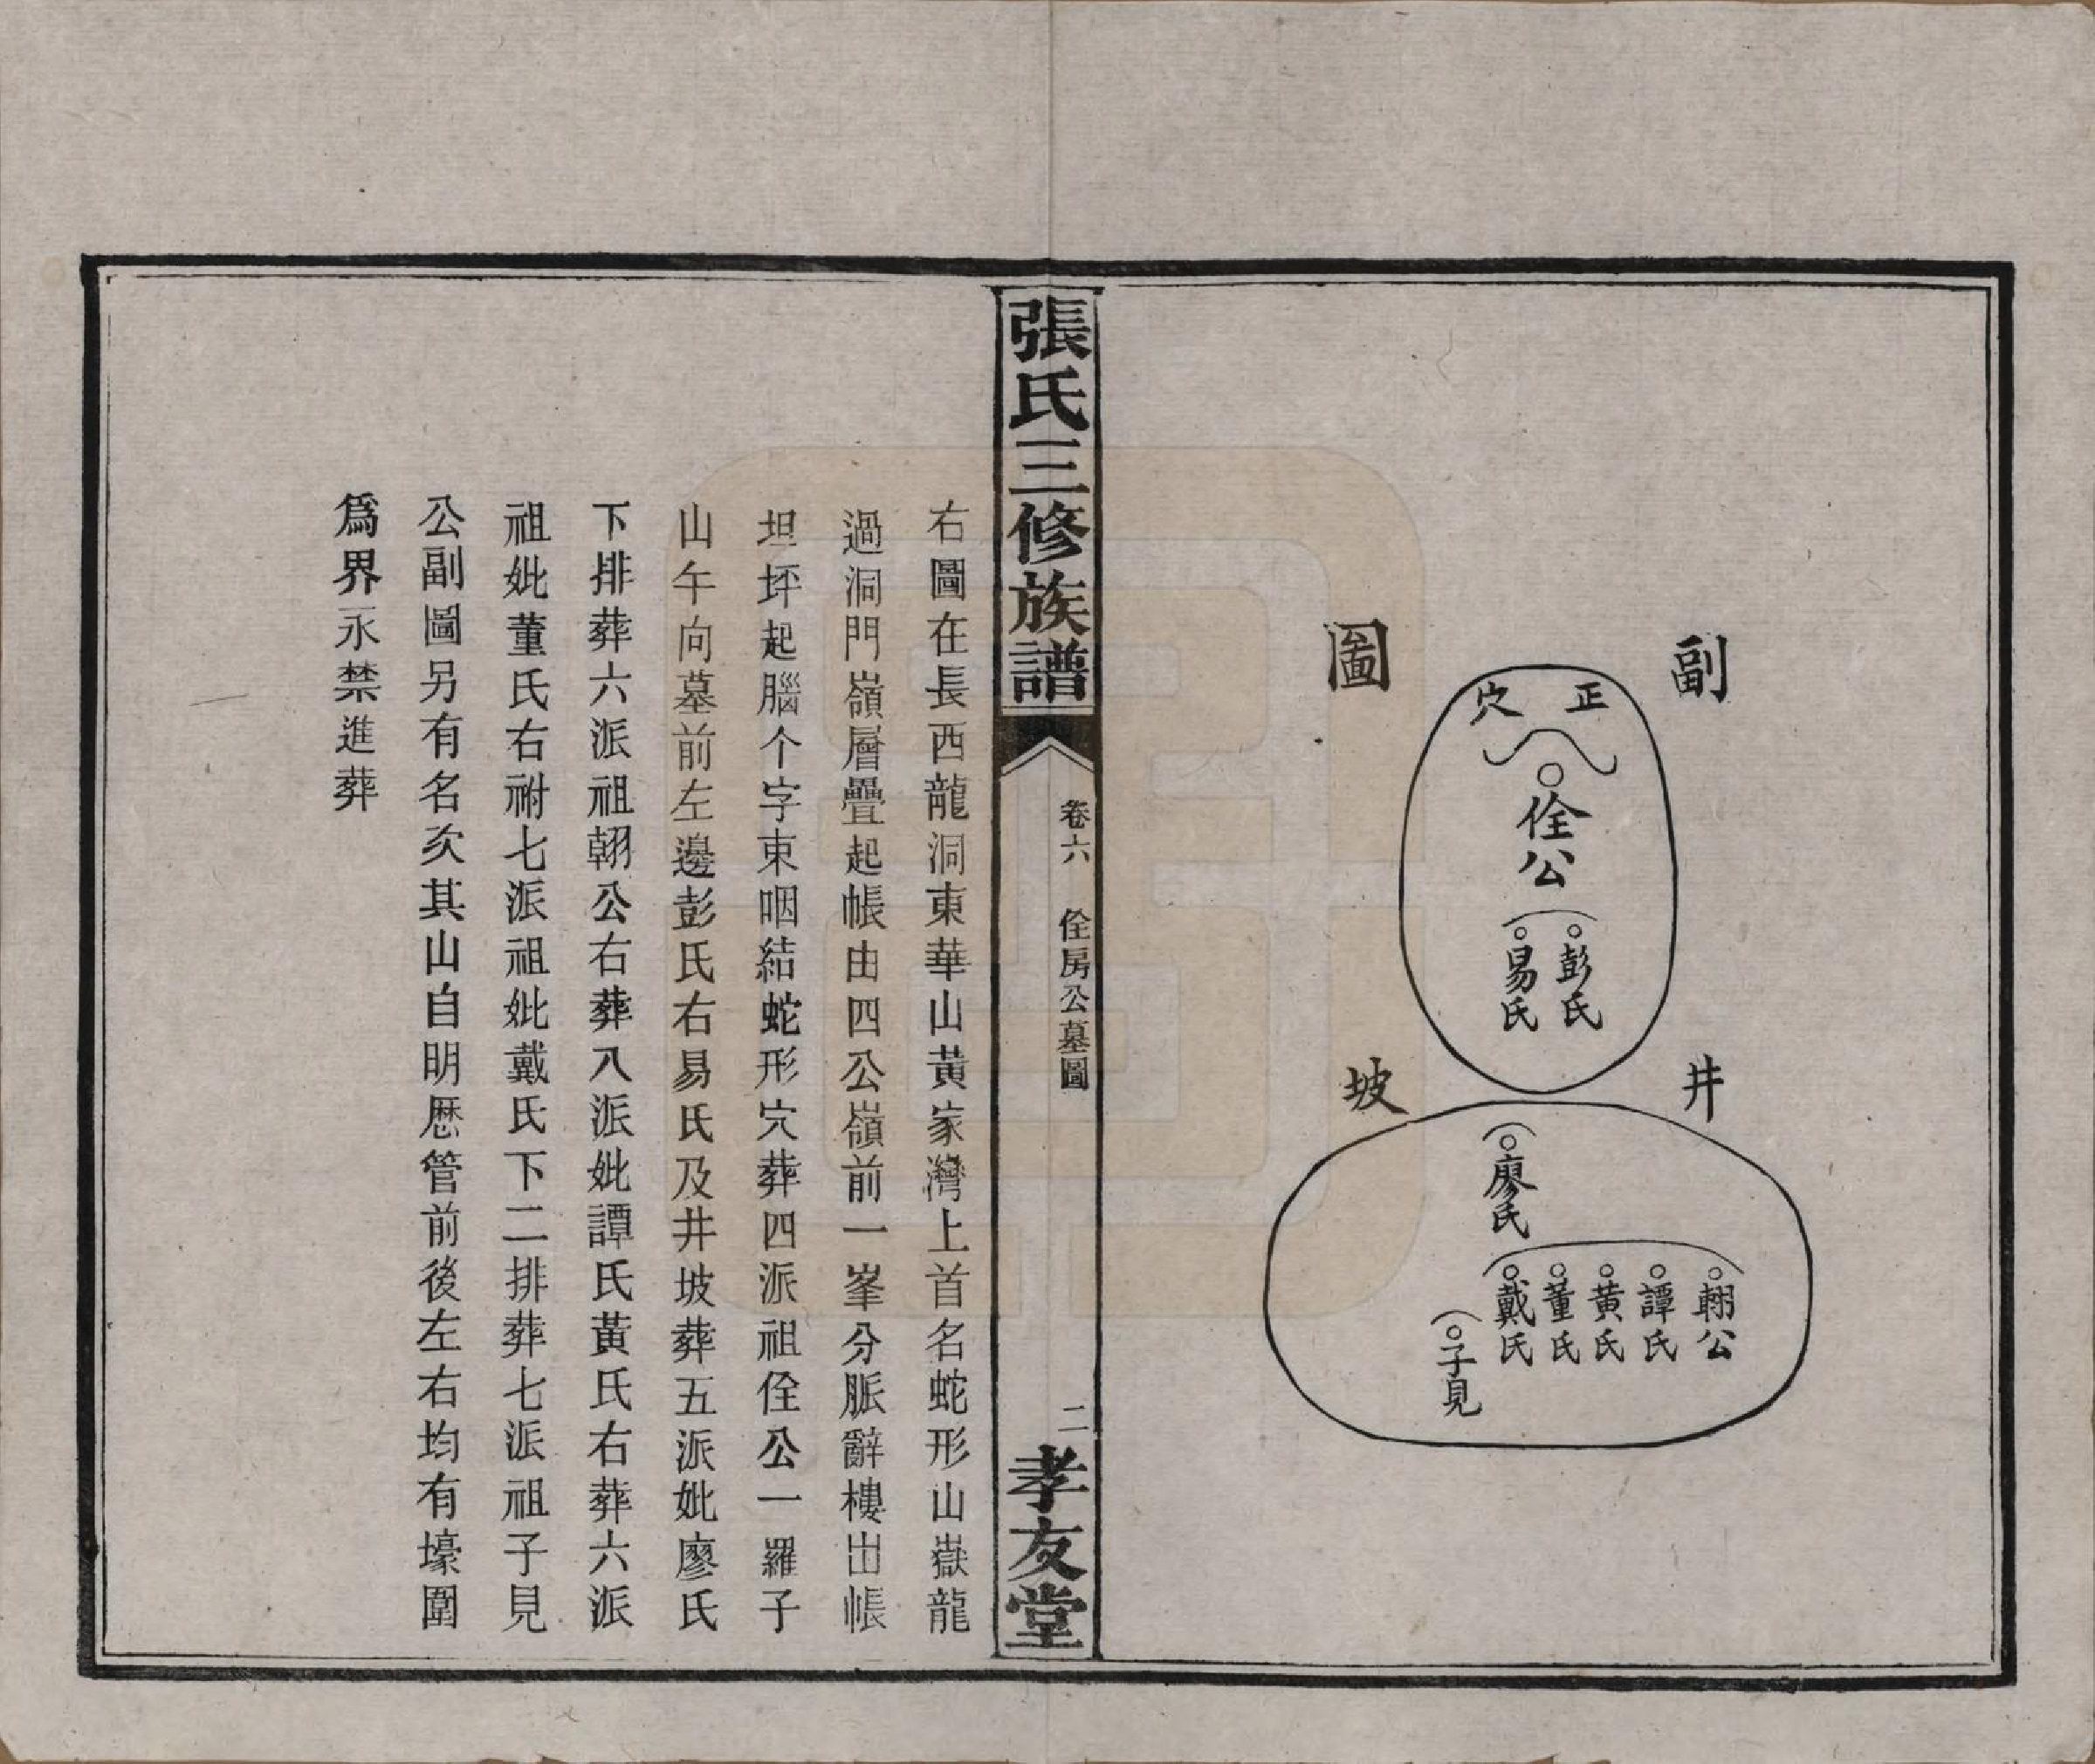 副圖
正穴
佺公
彭氏
易氏
井坡
廖氏
翱公
譚氏
黄氏
董氏
戴氏
子見
張氏三修族譜
卷六 佺房公墓圖
二
孝友堂
右圖在長西龍洞東華山黃家灣上首名蛇形山嶽龍
過洞門嶺層疊起帳由四公嶺前一峯分脈辭樓出帳
坦坪起腦个字束咽結蛇形穴葬四派祖佺公一羅子
山午向墓前左邊彭氏右易氏及井坡葬五派妣廖氏
下排葬六派祖翱公右葬八派妣譚氏黃氏右葬六派
祖妣董氏右祔七派祖妣戴氏下二排葬七派祖子見
公副圖另有名㳄其山自明歷管前後左右均有壕圍
爲界永禁進葬